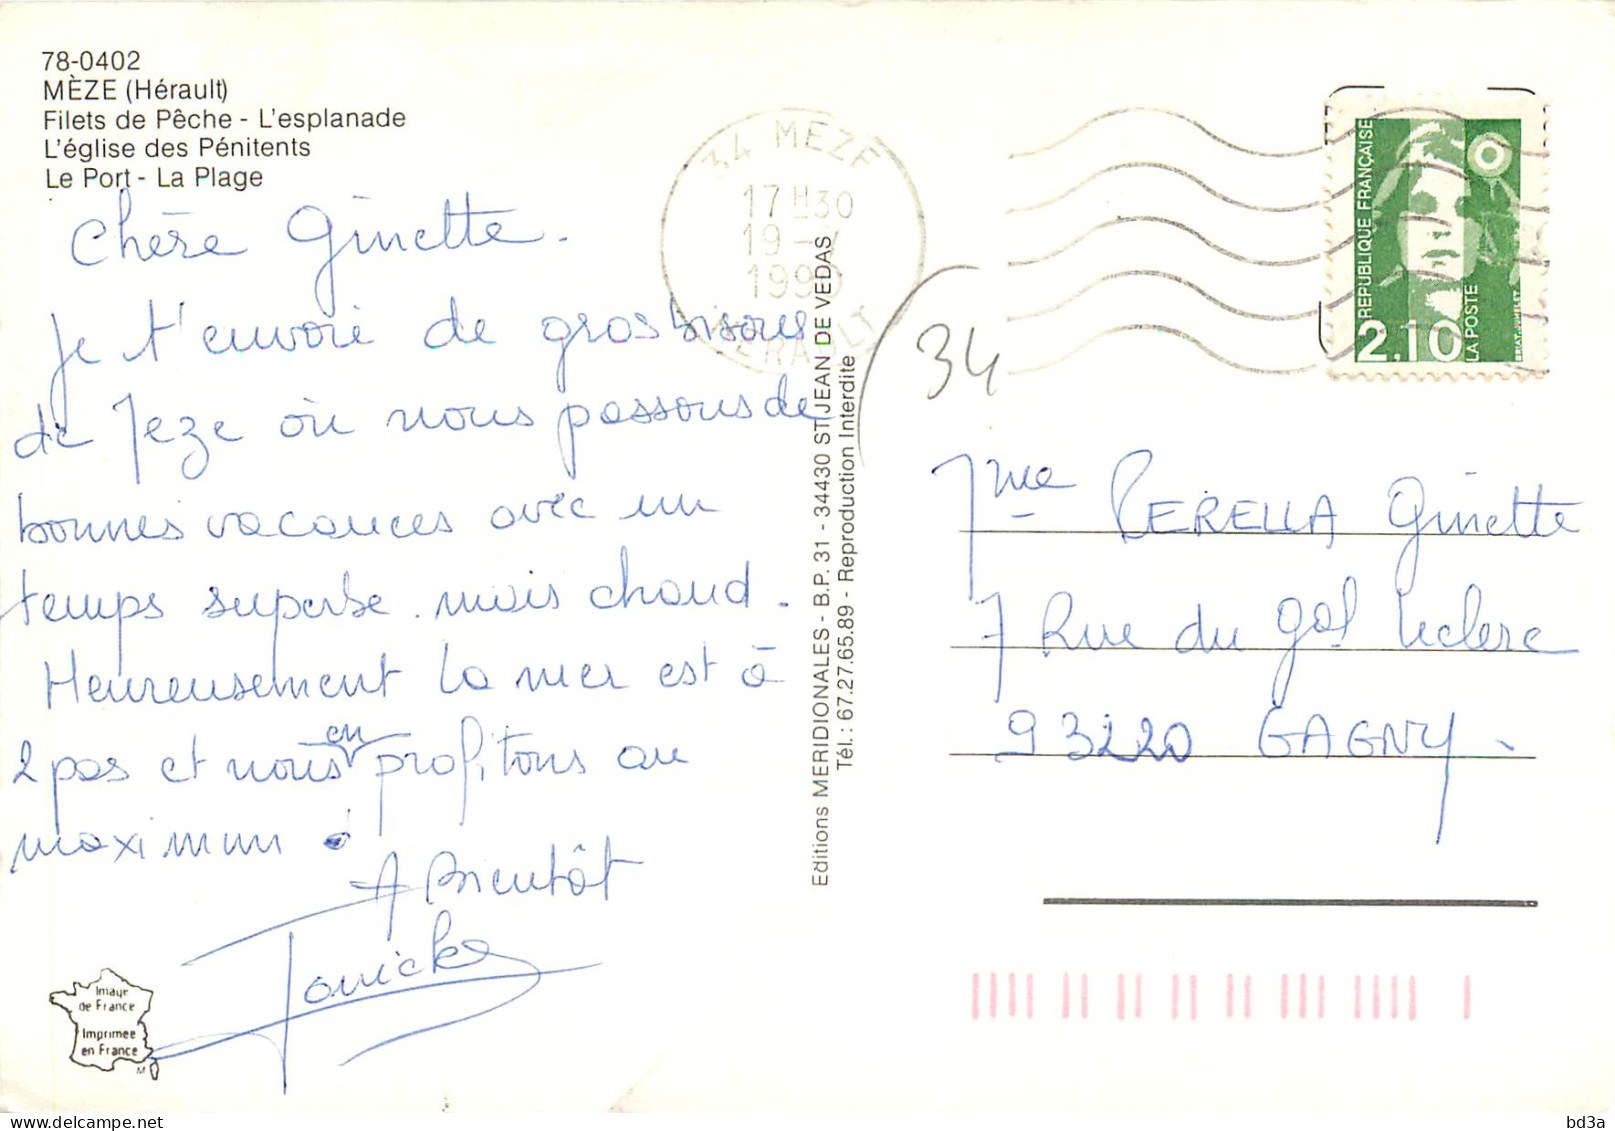 78-0402
MÈZE (Hérault)
Filets de Pêche - L'esplanade
L'église des Pénitents
Le Port - La Plage
Chère Ginette.
Je t'envoie de gros bisous
de Mèze où nous passons de
bonnes vacances avec un
temps superbe. mais chaud.
Heureusement la mer est à
2 pas et nous en profitons au
maximum
A Bientôt
Image
de France
Imprimée
en France
M
Editions MERIDIONALES - B.P. 31 - 34430 ST JEAN DE VEDAS
Tél.: 67.27.65.89 - Reproduction Interdite
34 MEZE
17H30
19 -
199
HERAULT
34
REPUBLIQUE FRANÇAISE
2,10
LA POSTE
Mme PERELLA Ginette
7 Rue du Gal Leclerc
93220 GAGNY.
delcampe.net
bd3a